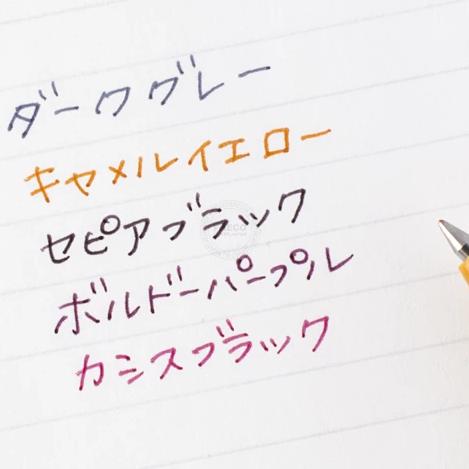 ダークグレー
キャメルイエロー
セピアブラック
ボルドーパープル
カシスブラック